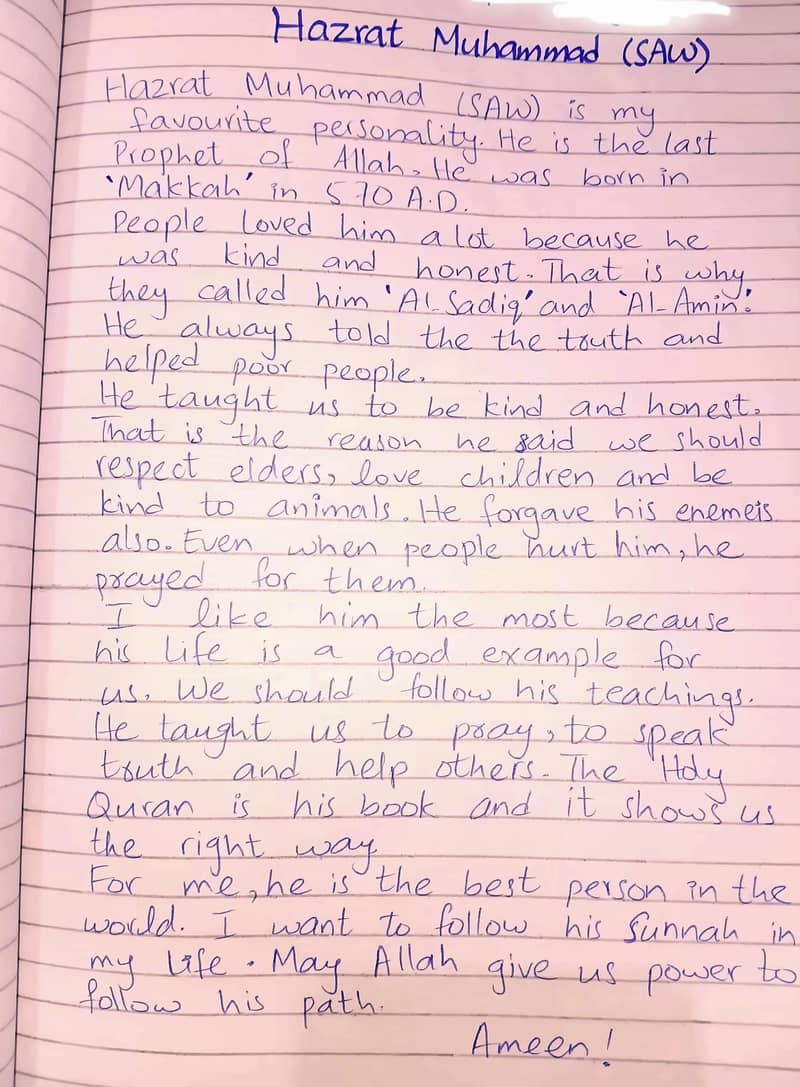 Hazrat Muhammad (SAW)
Hazrat Muhammad (SAW) is my
favourite personality. He is the last
Prophet of Allah. He was born in
'Makkah' in 570 A.D.
People loved him a lot because he
was kind and honest. That is why
they called him 'Al-Sadiq' and 'Al-Amin'.
He always told the the truth and
helped poor people.
He taught us to be kind and honest.
That is the reason he said we should
respect elders, love children and be
kind to animals. He forgave his enemeis
also. Even when people hurt him, he
prayed for them.
I like him the most because
his life is a good example for
us. We should follow his teachings.
He taught us to pray, to speak
truth and help others. The Holy
Quran is his book and it shows us
the right way
For me, he is the best person in the
world. I want to follow his Sunnah in
my life. May Allah give us power to
follow his path.
Ameen!